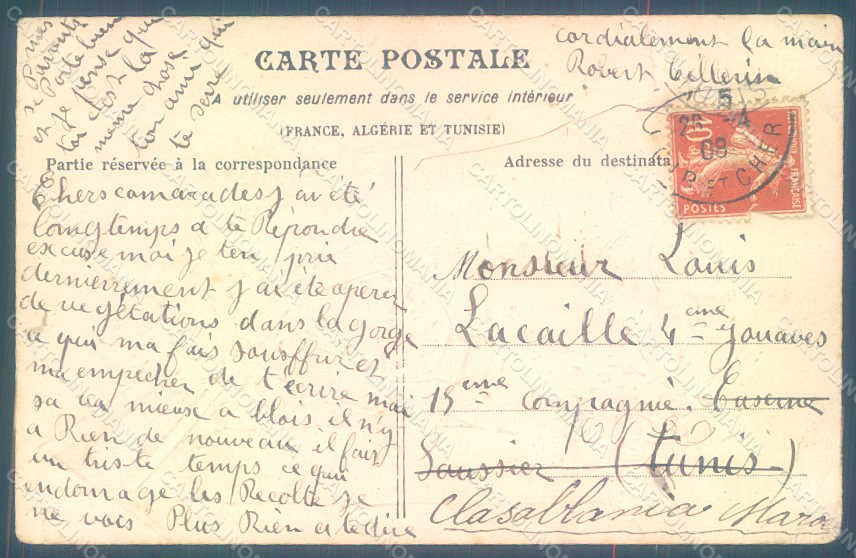 CARTE POSTALE
A utiliser seulement dans le service intérieur
(FRANCE, ALGÉRIE ET TUNISIE)
Partie réservée à la correspondance
Adresse du destinata
Chers camarades j'ai été
longtemps a te Repondre
excuse moi je ten prie
dernierrement j'ai été aperer
de vegétations dans la gorge
a qui ma fais souffrir et
ma empecher de t'ecrire mai
sa va mieuse a blois il n'y
a Rien de nouveau il fais
un triste temps ce qui
endomage les Recolte je
ne vois Plus Rien a te dire
mes
Parents
se Porte bien
et je pense que
toi c'est la
meme chose
ton ami qui
te serre
cordialement la main
Robert Cellerin
Monsieur Louis
Lacaille 4eme Zouaves
15eme compagnie. Caserne
Saussier (Tunis)
Casablanca Maro
BLOIS
5
26 4
08
LOIR ET CHER
10
POSTES
FRANÇAISE
CARTOLINOMANIA